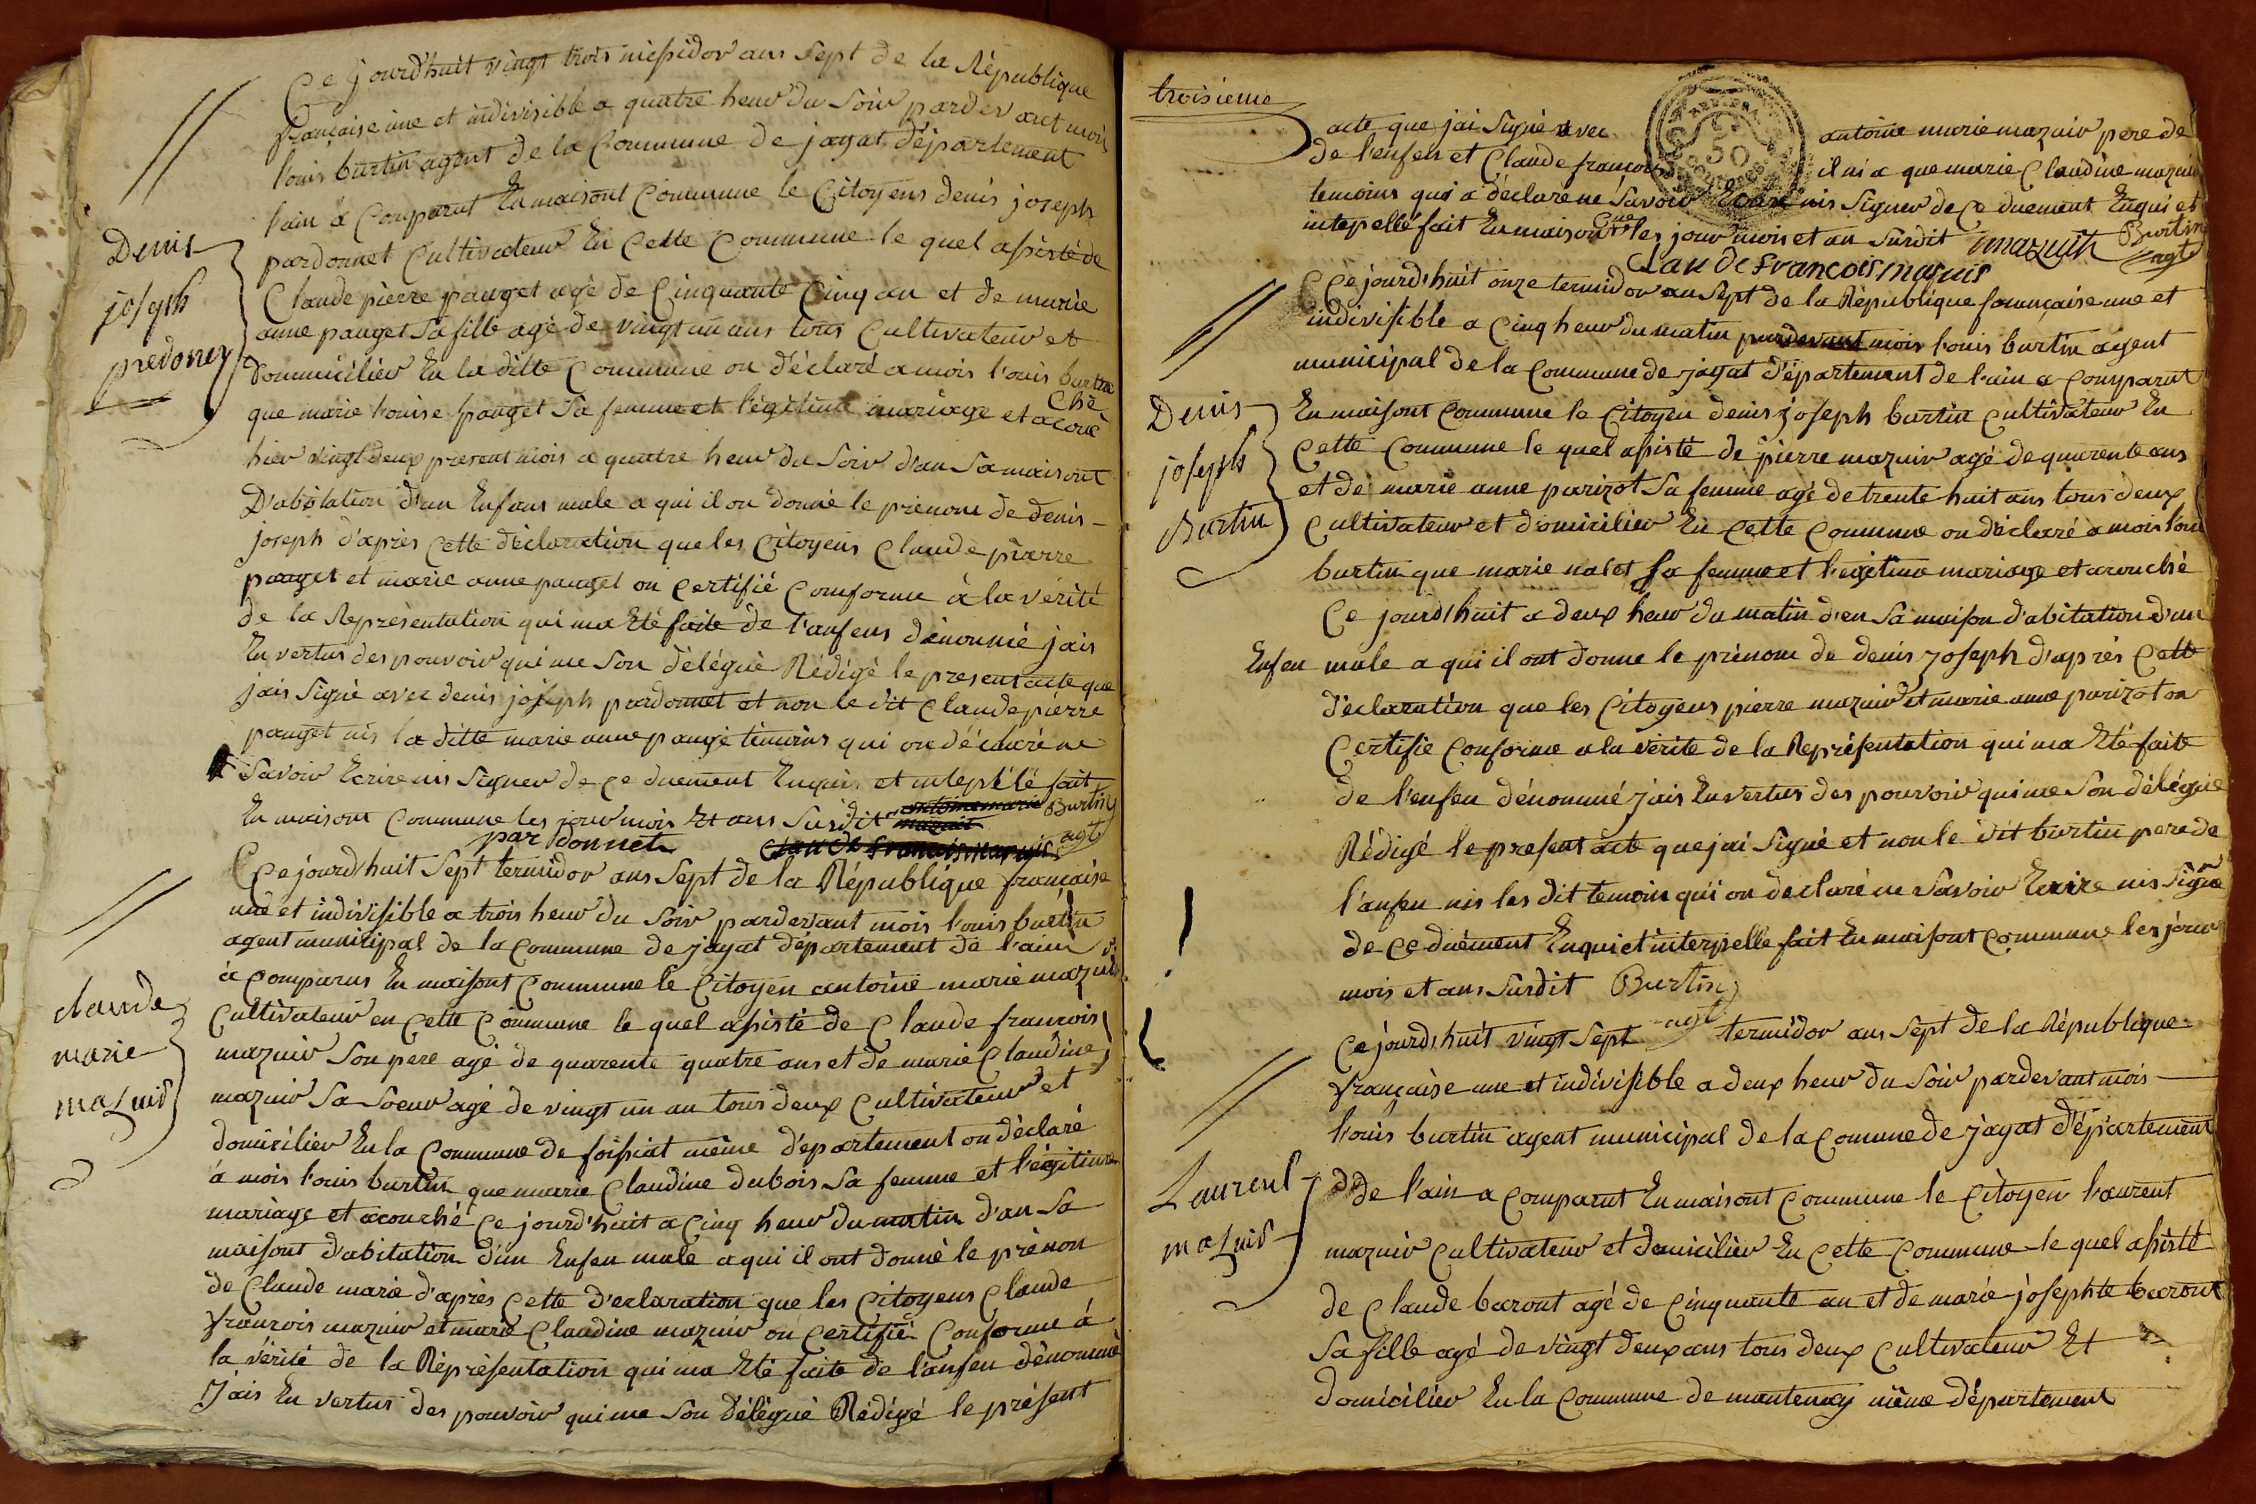 Ce jourd'huit vingt trois messidor ans sept de la République
française une et indivisible a quatre heur du soir pardevant mois
louis burtin agent de la Commune de jayat département
lain a Comparut En maisont Commune le Citoyens denis joseph
pardonnet Cultivateur En Cette Commune le quel assisté de
Claude pierre pauget agé de Cinquante Cinq an et de marie
anne pauget sa fille agé de vingt un ans tous Cultivateur et
Domicilier En la ditte Commune on déclaré a mois louis burtin
que marie louise pauget sa femme et légitime mariage et acou
ché
hier vingt deux present mois a quatre heur du soir d'an sa maisont
D'abitation d'un Enfans male a qui il on donné le prénom de denis
joseph d'après Cette déclaration que les Citoyens Claude piarre
pauget et marie anne pauget on Certifié Conforme à la vérité
de la Représentation qui ma Eté faite de l'anfens dénommé jais
En vertus des pouvoir qui me son délégué Rédigé le present acte que
jais Signé avec denis joseph pardonnet et non le dit Claude piérre
pauget nis la ditte marie anne paugé témoins qui on déclaré ne
savoir Ecrire nis Signer de ce duement Enquis et intepélé fait
En maisont Commune les jour mois Et ans Susdit Burtin
par donnet agt
Denis
joseph
predoney
Ce jourd'huit sept termidor ans sept de la République française
une et indivisible a trois heur du soir pardevant mois louis burtin
agent municipal de la Commune de jayat département de l'ain
à Comparus En maisont Commune le Citoyen antoine marie mazuir
Cultivateur en Cette Commune le quel assisté de Claude francois
mazuir son pere agé de quarente quatre ans et de marie Claudine
mazuir sa soeur agé de vingt un an tous deux Cultivateur et
domicilier En la Commune de foissiat même département on déclaré
à mois louis burtin que marie Claudine dubois sa femme et légitime
mariage et acouché Ce jourd'huit a Cinq heur du matin d'an sa
maisont d'abitation d'un Enfen male a qui il ont donné le prénon
de Claude marie d'après Cette declaration que les Citoyens Claude
francois mazuir et marie Claudine mazuir on Certifié Conforme à
la vérité de la Réprésentation qui ma Eté faite de l'anfen dénommé
Jais En vertus des pouvoir qui me son délégué Rédigé le présent
claude
marie
mazuir
troisieme
acte que jai Signé avec antoine marie mazuir pere de
de l'enfen et Claude françois il ni a que marie Claudine mazuir
temoins qui a déclaré ne Savoir Ecrire nis Signer de Ce duement Enqui et
intepellé fait En maison Cne les jour mois et an Susdit mazuir Burtin
Claude francois masuis agt
Ce jourd'huit onze termidor an sept de la République française une et
indivisible a Cinq heur du matin pardevant mois louis burtin agent
municipal de la Commune de jayat département de l'ain a Comparut
En maisont Commune le Citoyen denis joseph burtin Cultivateur En
Cette Commune le quel assisté de pierre mazuir agé de quarente ans
et de marie anne parizot sa femme agé de trente huit ans tous deux
Cultivateur et domicilier En Cette Commune on déclaré a mois loui
burtin que marie nalet sa femme et légitime mariage et acouché
Ce jourd'huit a deux heur du matin d'en sa maison d'abitation d'un
Enfen male a qui il ont donne le prénom de denis joseph d'après Cette
déclaration que les Citoyens pierre mazuir et marie anne parizot on
Certifie Conforme a la vérite de la Représentation qui ma Eté faite
de l'enfen dénommé jais En vertus des pouvoir qui me son délégué
Rédigé le present acte que jai Signé et non le dit burtin pere de
l'anfen nis les dit temoin qui on declaré ne Savoir Ecrire nis Signé
de Ce duement Enqui et interpellé fait En maisont Commune les jour
mois et ans Susdit Burtin
agt
Denis
joseph
Burtin
Ce jourd'huit vingt sept termidor ans sept de la République
française une et indivisible a deux heur du soir pardevant mois
louis burtin agent municipal de la Comune de jayat département
de l'ain a Comparut En maisont Commune le Citoyen laurent
mazuir Cultivateur et domicilier En Cette Commune le quel assisté
de Claude baront agé de Cinquante an et de marie josephte baront
sa fille agé de vingt deux ans tous deux Cultivateur Et
domicilier En la Commune de mantenay même département
Laurent
mazuir